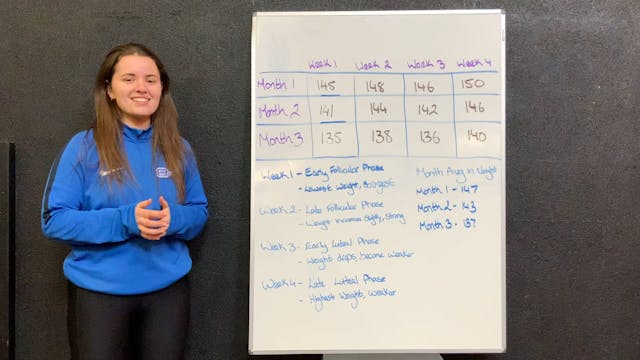 Week 1 Week 2 Week 3 Week 4
Month 1 145 148 146 150
Month 2 141 144 142 146
Month 3 135 138 136 140
Week 1 - Early Follicular Phase
- Lowest Weight, Strongest
Week 2 - Late Follicular Phase
- Weight increases slightly, strong
Week 3 - Early Luteal Phase
- Weight drops, become weaker
Week 4 - Late Luteal Phase
- Highest Weight, weaker
Month Avg in Weight
Month 1 - 147
Month 2 - 143
Month 3 - 137